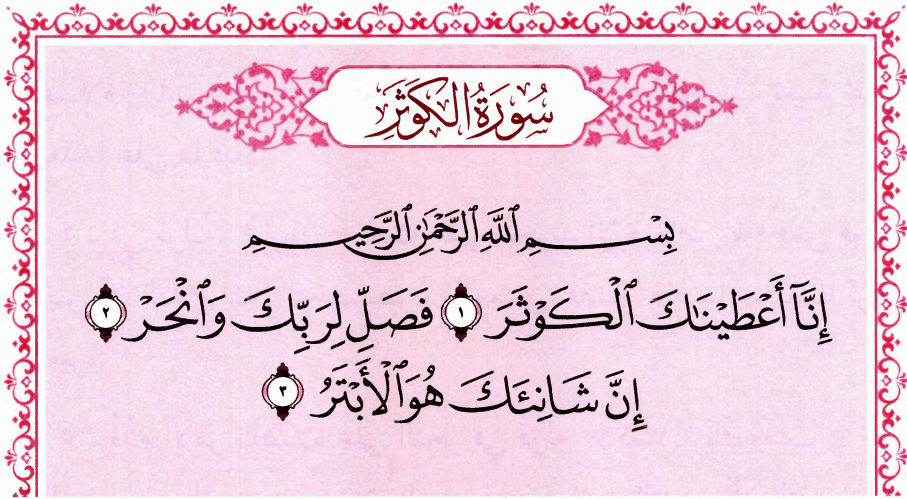 سُورَةُ الكَوثَرِ
بِسْمِ ٱللَّهِ ٱلرَّحْمَٰنِ ٱلرَّحِيمِ
إِنَّآ أَعْطَيْنَٰكَ ٱلْكَوْثَرَ ١ فَصَلِّ لِرَبِّكَ وَٱنْحَرْ ٢
إِنَّ شَانِئَكَ هُوَ ٱلْأَبْتَرُ ٣